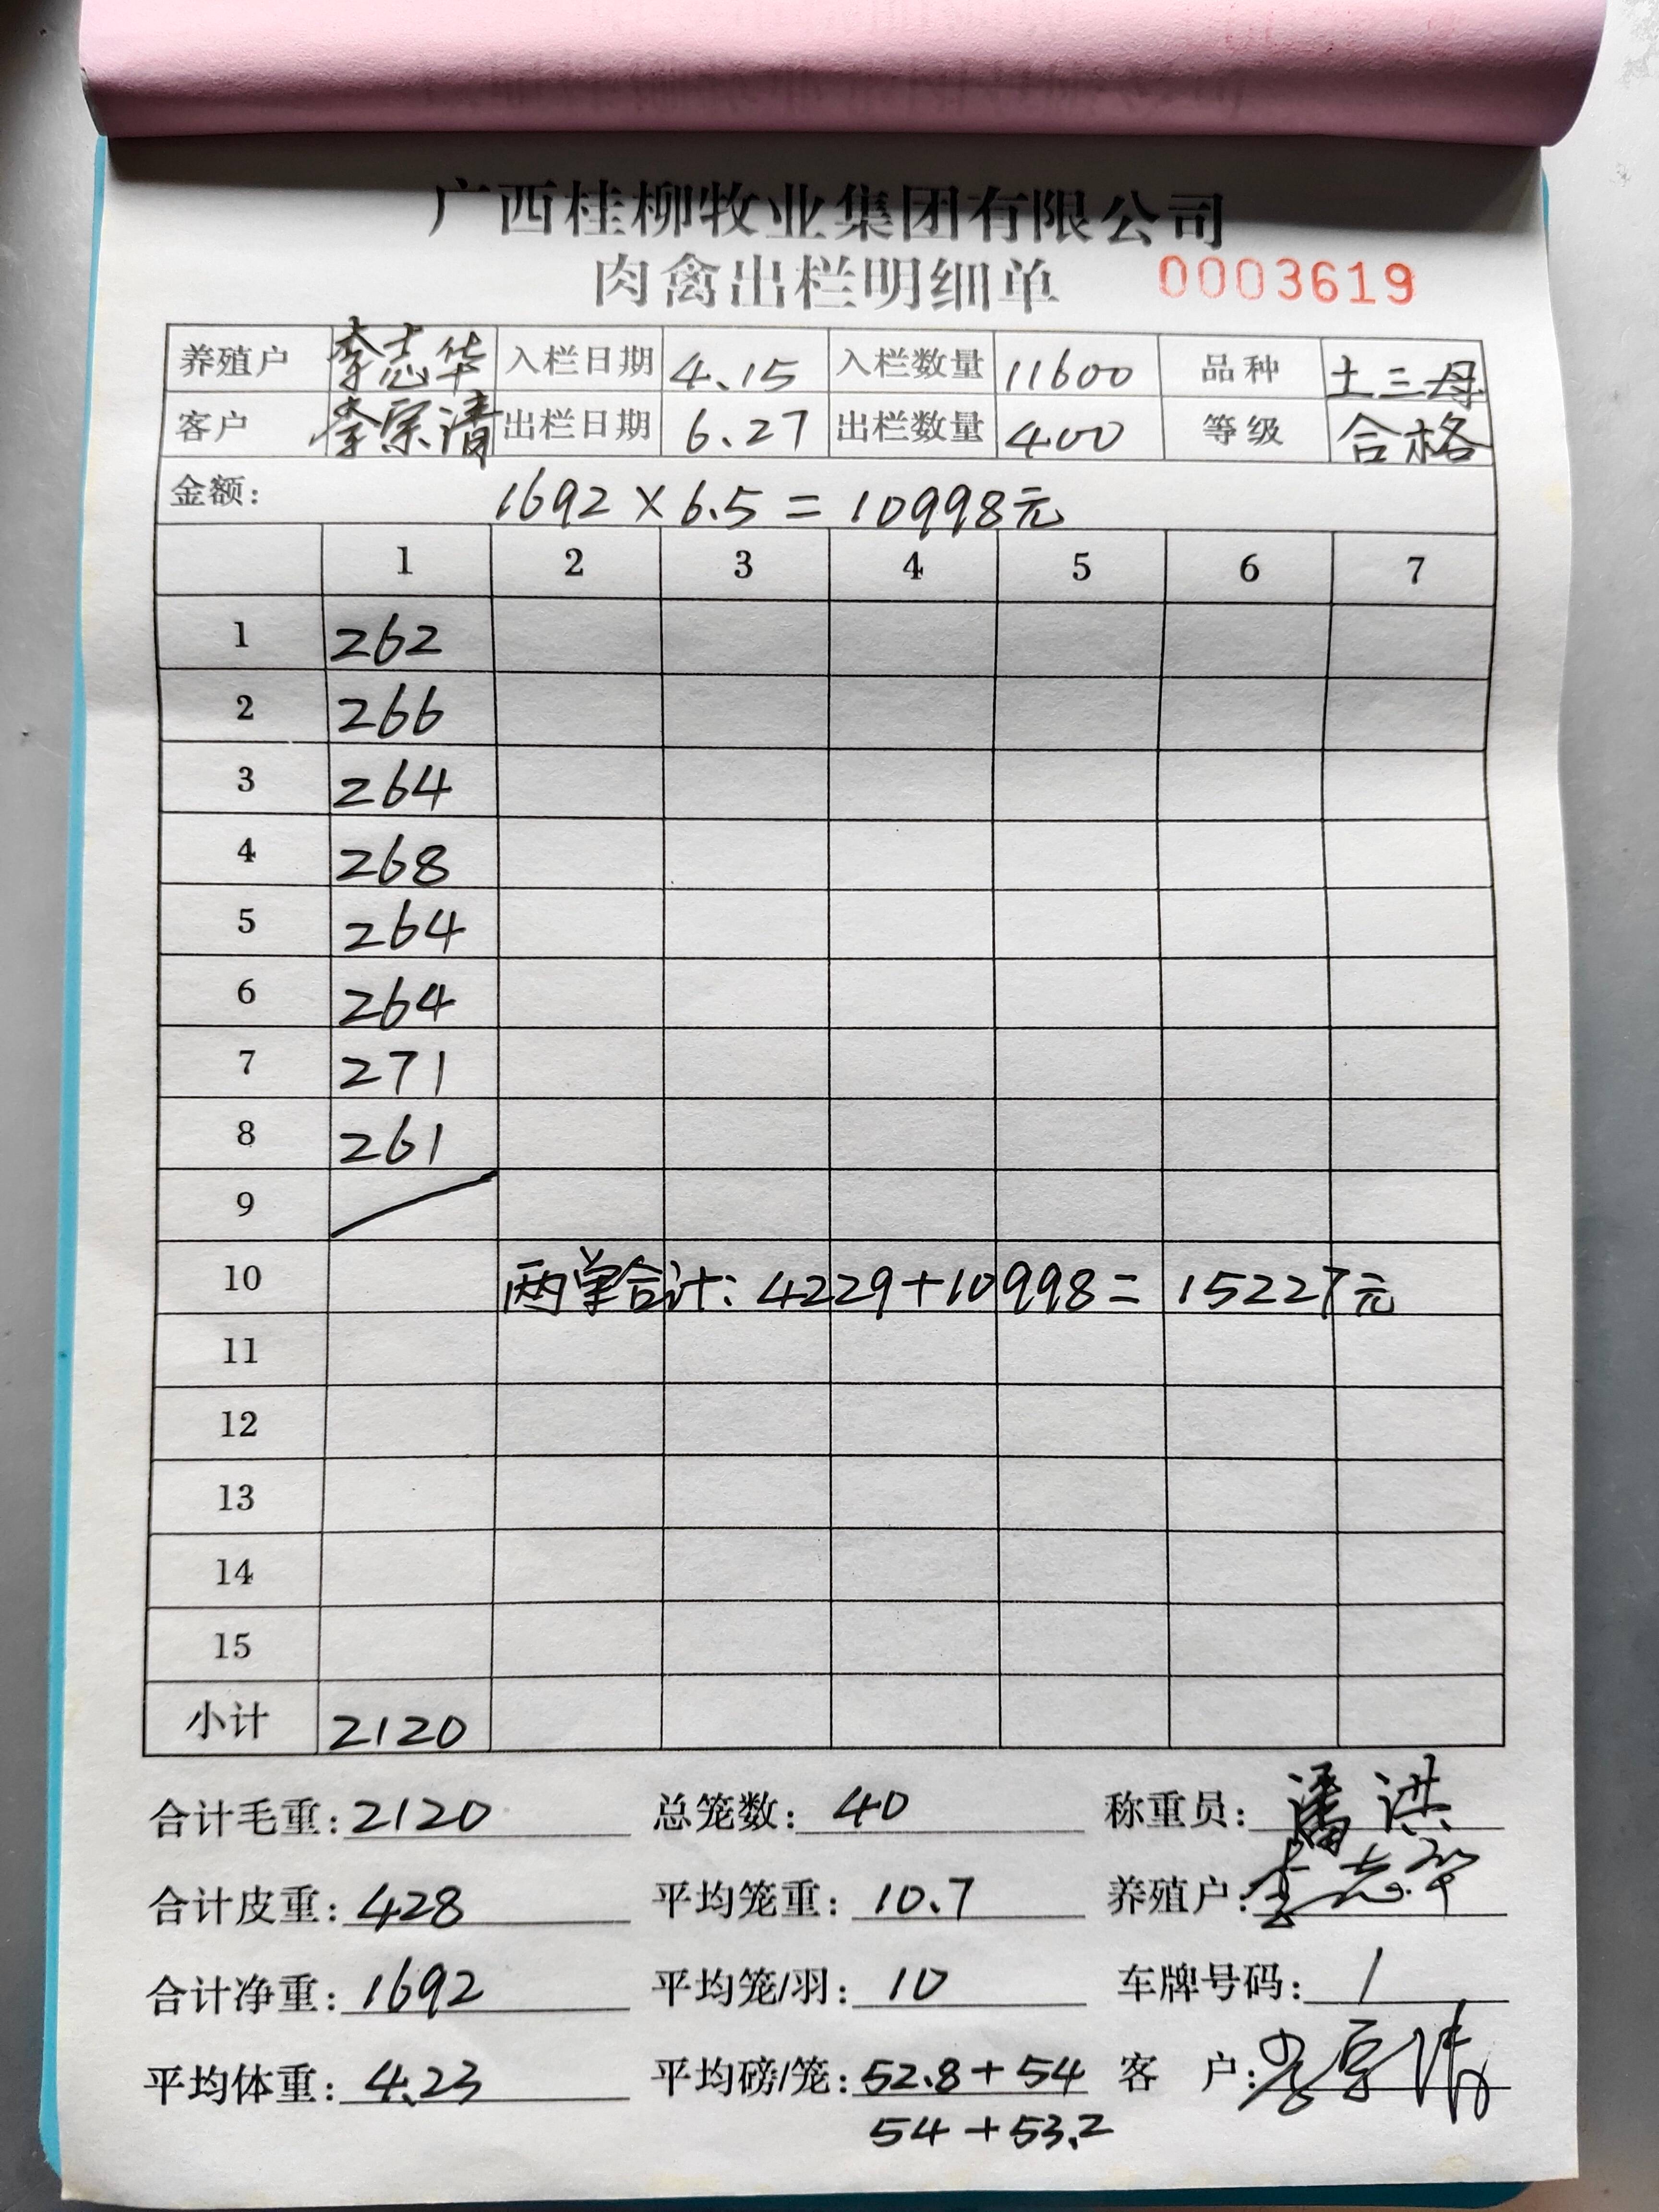 广西桂柳牧业集团有限公司
肉禽出栏明细单 0003619
养殖户 李志华 入栏日期 4.15 入栏数量 11600 品种 土三母
客户 李宗清 出栏日期 6.27 出栏数量 400 等级 合格
金额: 1692×6.5=10998元
1 2 3 4 5 6 7
1 262
2 266
3 264
4 268
5 264
6 264
7 271
8 261
9
10 两单合计:4229+10998=15227元
11
12
13
14
15
小计 2120
合计毛重:2120 总笼数:40 称重员:潘洪
合计皮重:428 平均笼重:10.7 养殖户:李志华
合计净重:1692 平均笼/羽:10 车牌号码:/
平均体重:4.23 平均磅/笼:52.8+54 客户:
54+53.2